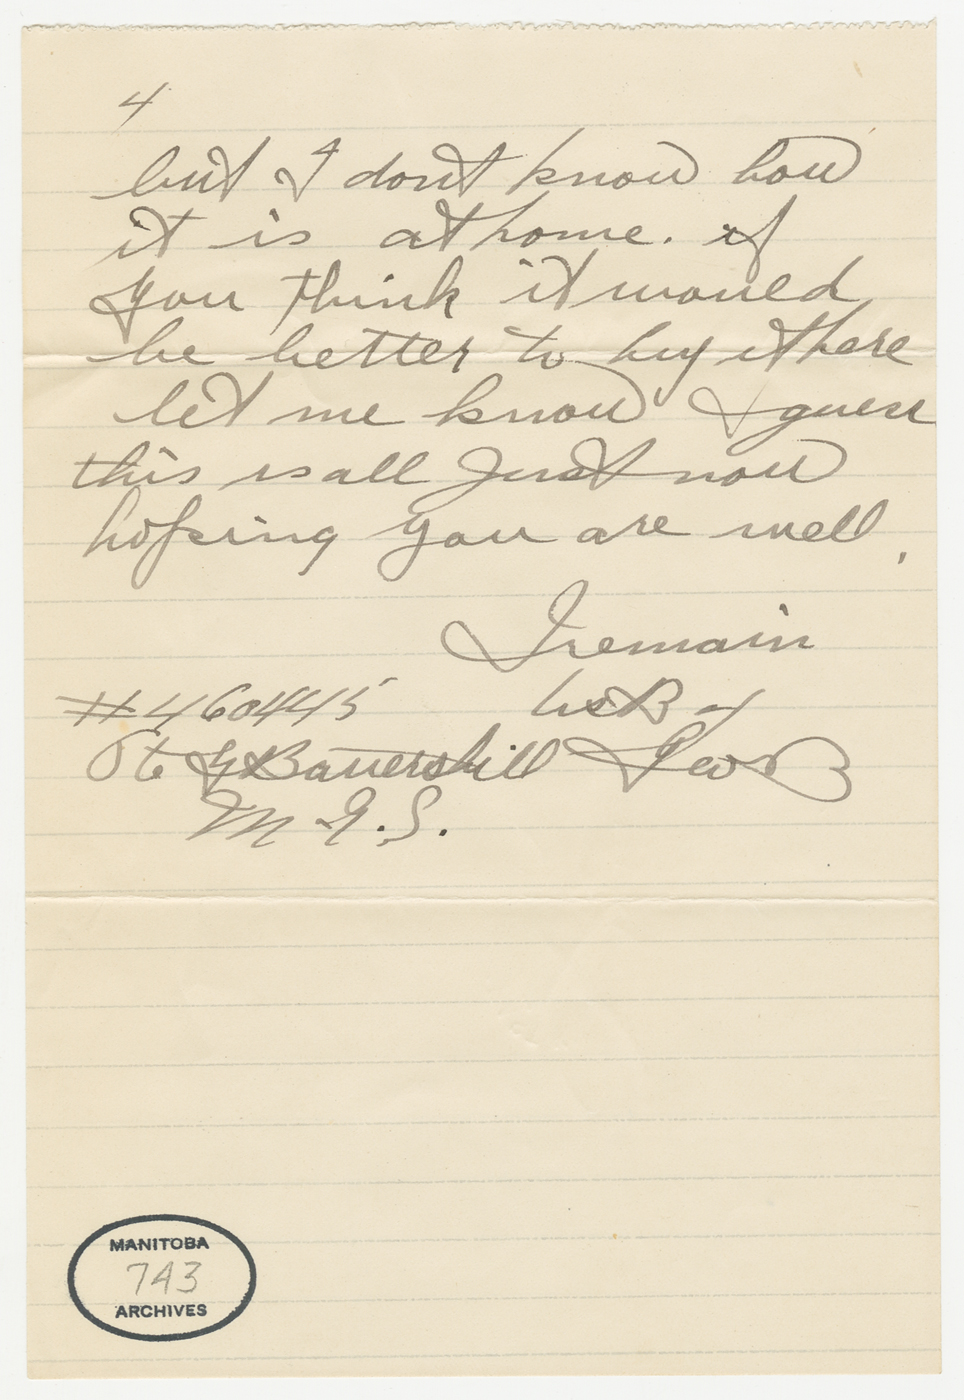 4
but I dont know how
it is at home. if
you think it would
be better to buy it here
let me know I guess
this is all Just now
hoping you are well,
I remain
#460445
Pte G Battershill Geo B
M.G.S.
MANITOBA
743
ARCHIVES